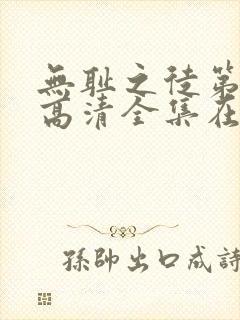 無耻之徒第
高清全集在
孫帥出口成詩